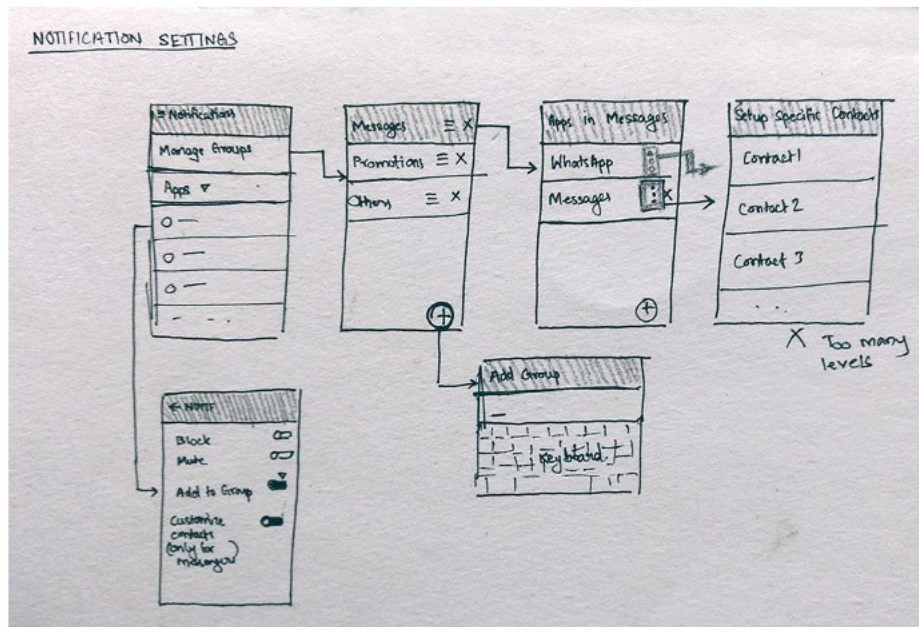 NOTIFICATION SETTINGS
≡ Notifications
Manage Groups
Apps ▼
Messages ≡ X
Promotions ≡ X
Others ≡ X
+
Apps in Messages
WhatsApp
Messages X
+
Setup Specific Contacts
Contact 1
Contact 2
Contact 3
...
X Too many
levels
Add Group
Keyboard
← NOTIF
Block
Mute
Add to Group
Customize
contacts
(only for
messenger)